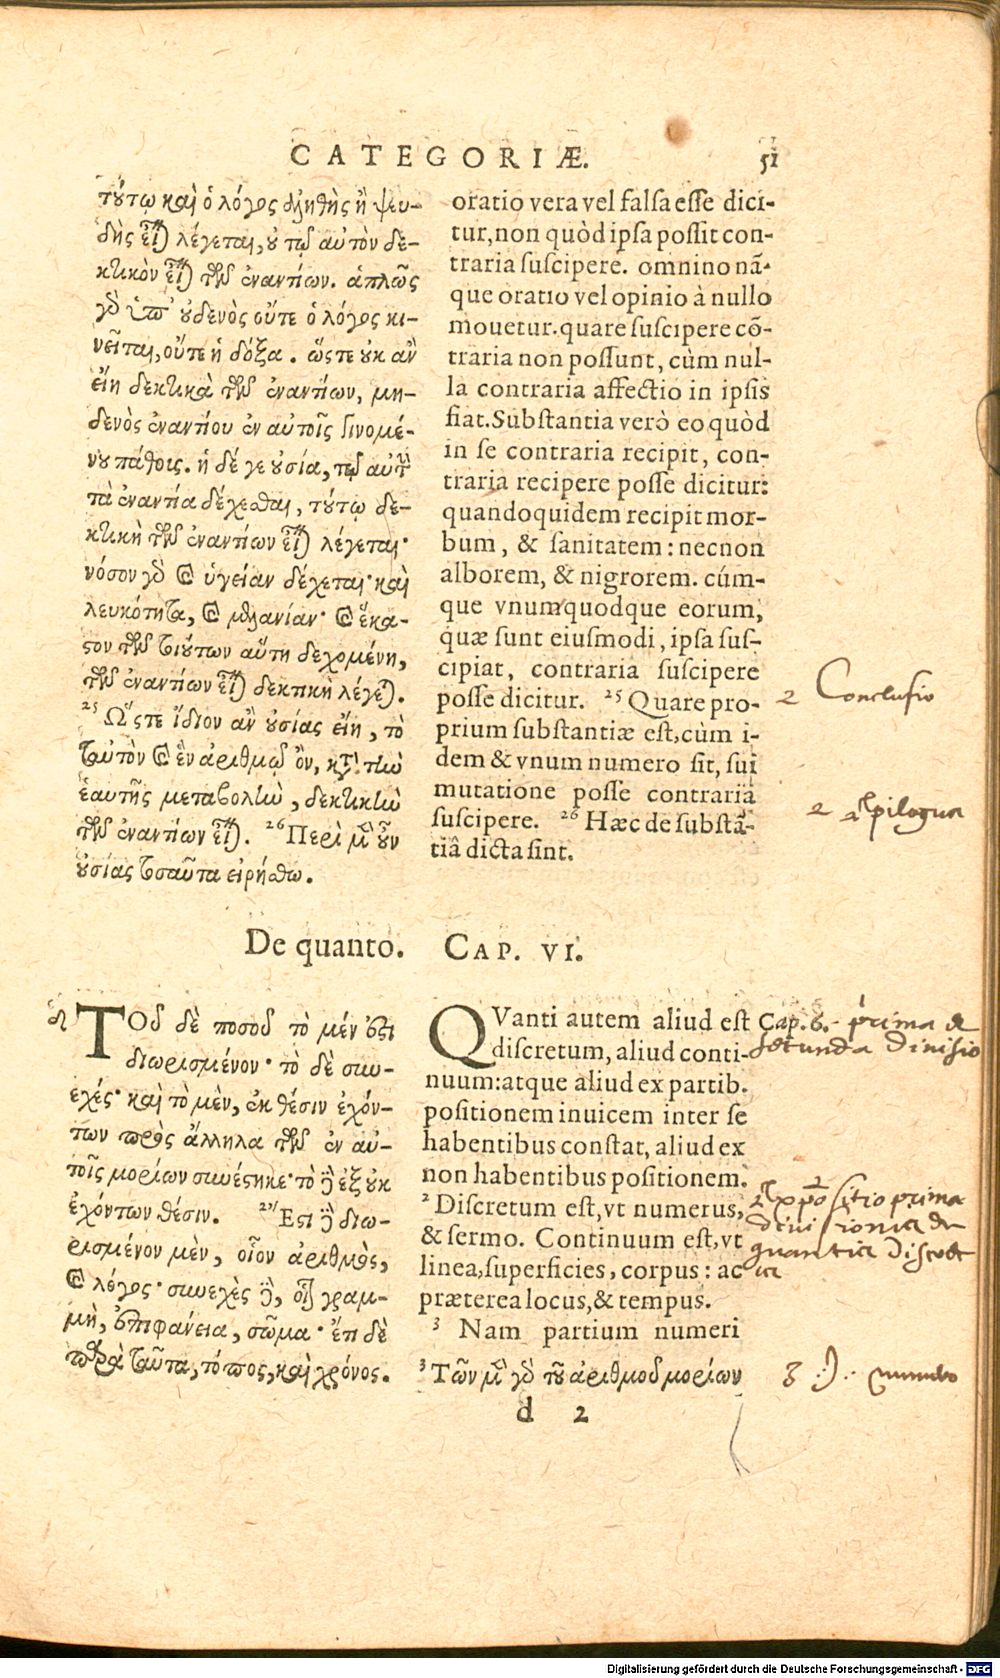 CATEGORIÆ. 51
τούτῳ καὶ ὁ λόγος ἀληθὴς ἢ ψευ-
δὴς εἶναι λέγεται, οὐ τῷ αὐτὸν δε-
κτικὸν εἶναι τῶν ἐναντίων. ἁπλῶς
γὰρ ὑπ' οὐδενὸς οὔτε ὁ λόγος κι-
νεῖται, οὔτε ἡ δόξα. ὥστε οὐκ ἂν
εἴη δεκτικὰ τῶν ἐναντίων, μη-
δενὸς ἐναντίου ἐν αὐτοῖς γινομέ-
νου πάθοις. ἡ δέ γε οὐσία, τῷ αὐτὴ
τὰ ἐναντία δέχεσθαι, τούτῳ δε-
κτικὴ τῶν ἐναντίων εἶναι λέγεται·
νόσον γὰρ καὶ ὑγείαν δέχεται· καὶ
λευκότητα, καὶ μελανίαν· καὶ ἕκα-
στον τῶν τοιούτων αὕτη δεχομένη,
τῶν ἐναντίων εἶναι δεκτικὴ λέγεται.
25 Ὥστε ἴδιον ἂν οὐσίας εἴη, τὸ
ταυτὸν καὶ ἓν ἀριθμῷ ὂν, κατὰ τὴν
ἑαυτῆς μεταβολὴν, δεκτικὴν
τῶν ἐναντίων εἶναι. 26 Περὶ μὲν οὖν
οὐσίας τοσαῦτα εἰρήσθω.
oratio vera vel falsa esse dici-
tur, non quòd ipsa possit con-
traria suscipere. omnino nã-
que oratio vel opinio à nullo
mouetur. quare suscipere cõ-
traria non possunt, cùm nul-
la contraria affectio in ipsis
fiat. Substantia verò eo quòd
in se contraria recipit, con-
traria recipere posse dicitur:
quandoquidem recipit mor-
bum, & sanitatem: necnon
alborem, & nigrorem. cúm-
que vnumquodque eorum,
quæ sunt eiusmodi, ipsa sus-
cipiat, contraria suscipere
posse dicitur. 25 Quare pro-
prium substantiæ est, cùm i-
dem & vnum numero sit, sui
mutatione posse contraria
suscipere. 26 Hæc de substã-
tiâ dicta sint.
2 Conclusio
2 Epilogus
De quanto. CAP. VI.
ΤΟῦ δὲ ποσοῦ τὸ μέν ἐστι
διωρισμένον· τὸ δὲ συν-
εχές· καὶ τὸ μὲν, ἐκ θέσιν ἐχόν-
των πρὸς ἄλληλα τῶν ἐν αὐ-
τοῖς μορίων συνέστηκε· τὸ δὲ ἐξ οὐκ
ἐχόντων θέσιν. 2 Ἔστι δὲ διω-
ρισμένον μὲν, οἷον ἀριθμὸς,
καὶ λόγος· συνεχὲς δὲ, οἷον γραμ-
μὴ, ἐπιφάνεια, σῶμα· ἔτι δὲ
παρὰ ταῦτα, τόπος, καὶ χρόνος.
QVanti autem aliud est
discretum, aliud conti-
nuum: atque aliud ex partib.
positionem inuicem inter se
habentibus constat, aliud ex
non habentibus positionem.
2 Discretum est, vt numerus,
& sermo. Continuum est, vt
linea, superficies, corpus: ac
præterea locus, & tempus.
3 Nam partium numeri
3 Τῶν μὲν γὰρ τοῦ ἀριθμοῦ μορίων
d 2
Cap. 6. prima et
secunda diuisio
2 Expositio prima
diuisionis
quantia
3 numero
Digitalisierung gefördert durch die Deutsche Forschungsgemeinschaft - DFG